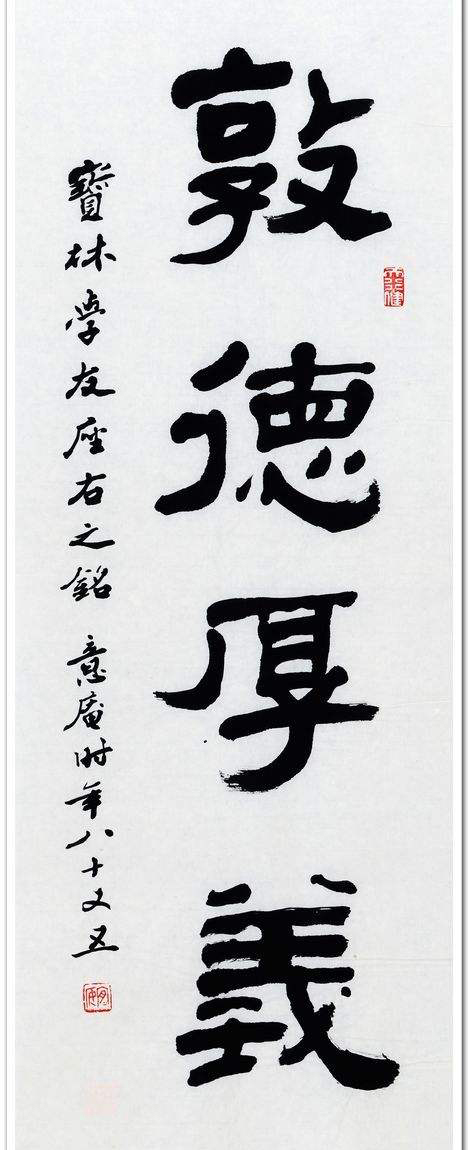 敦德厚義
寶林學友座右之銘 意庵时年八十又五